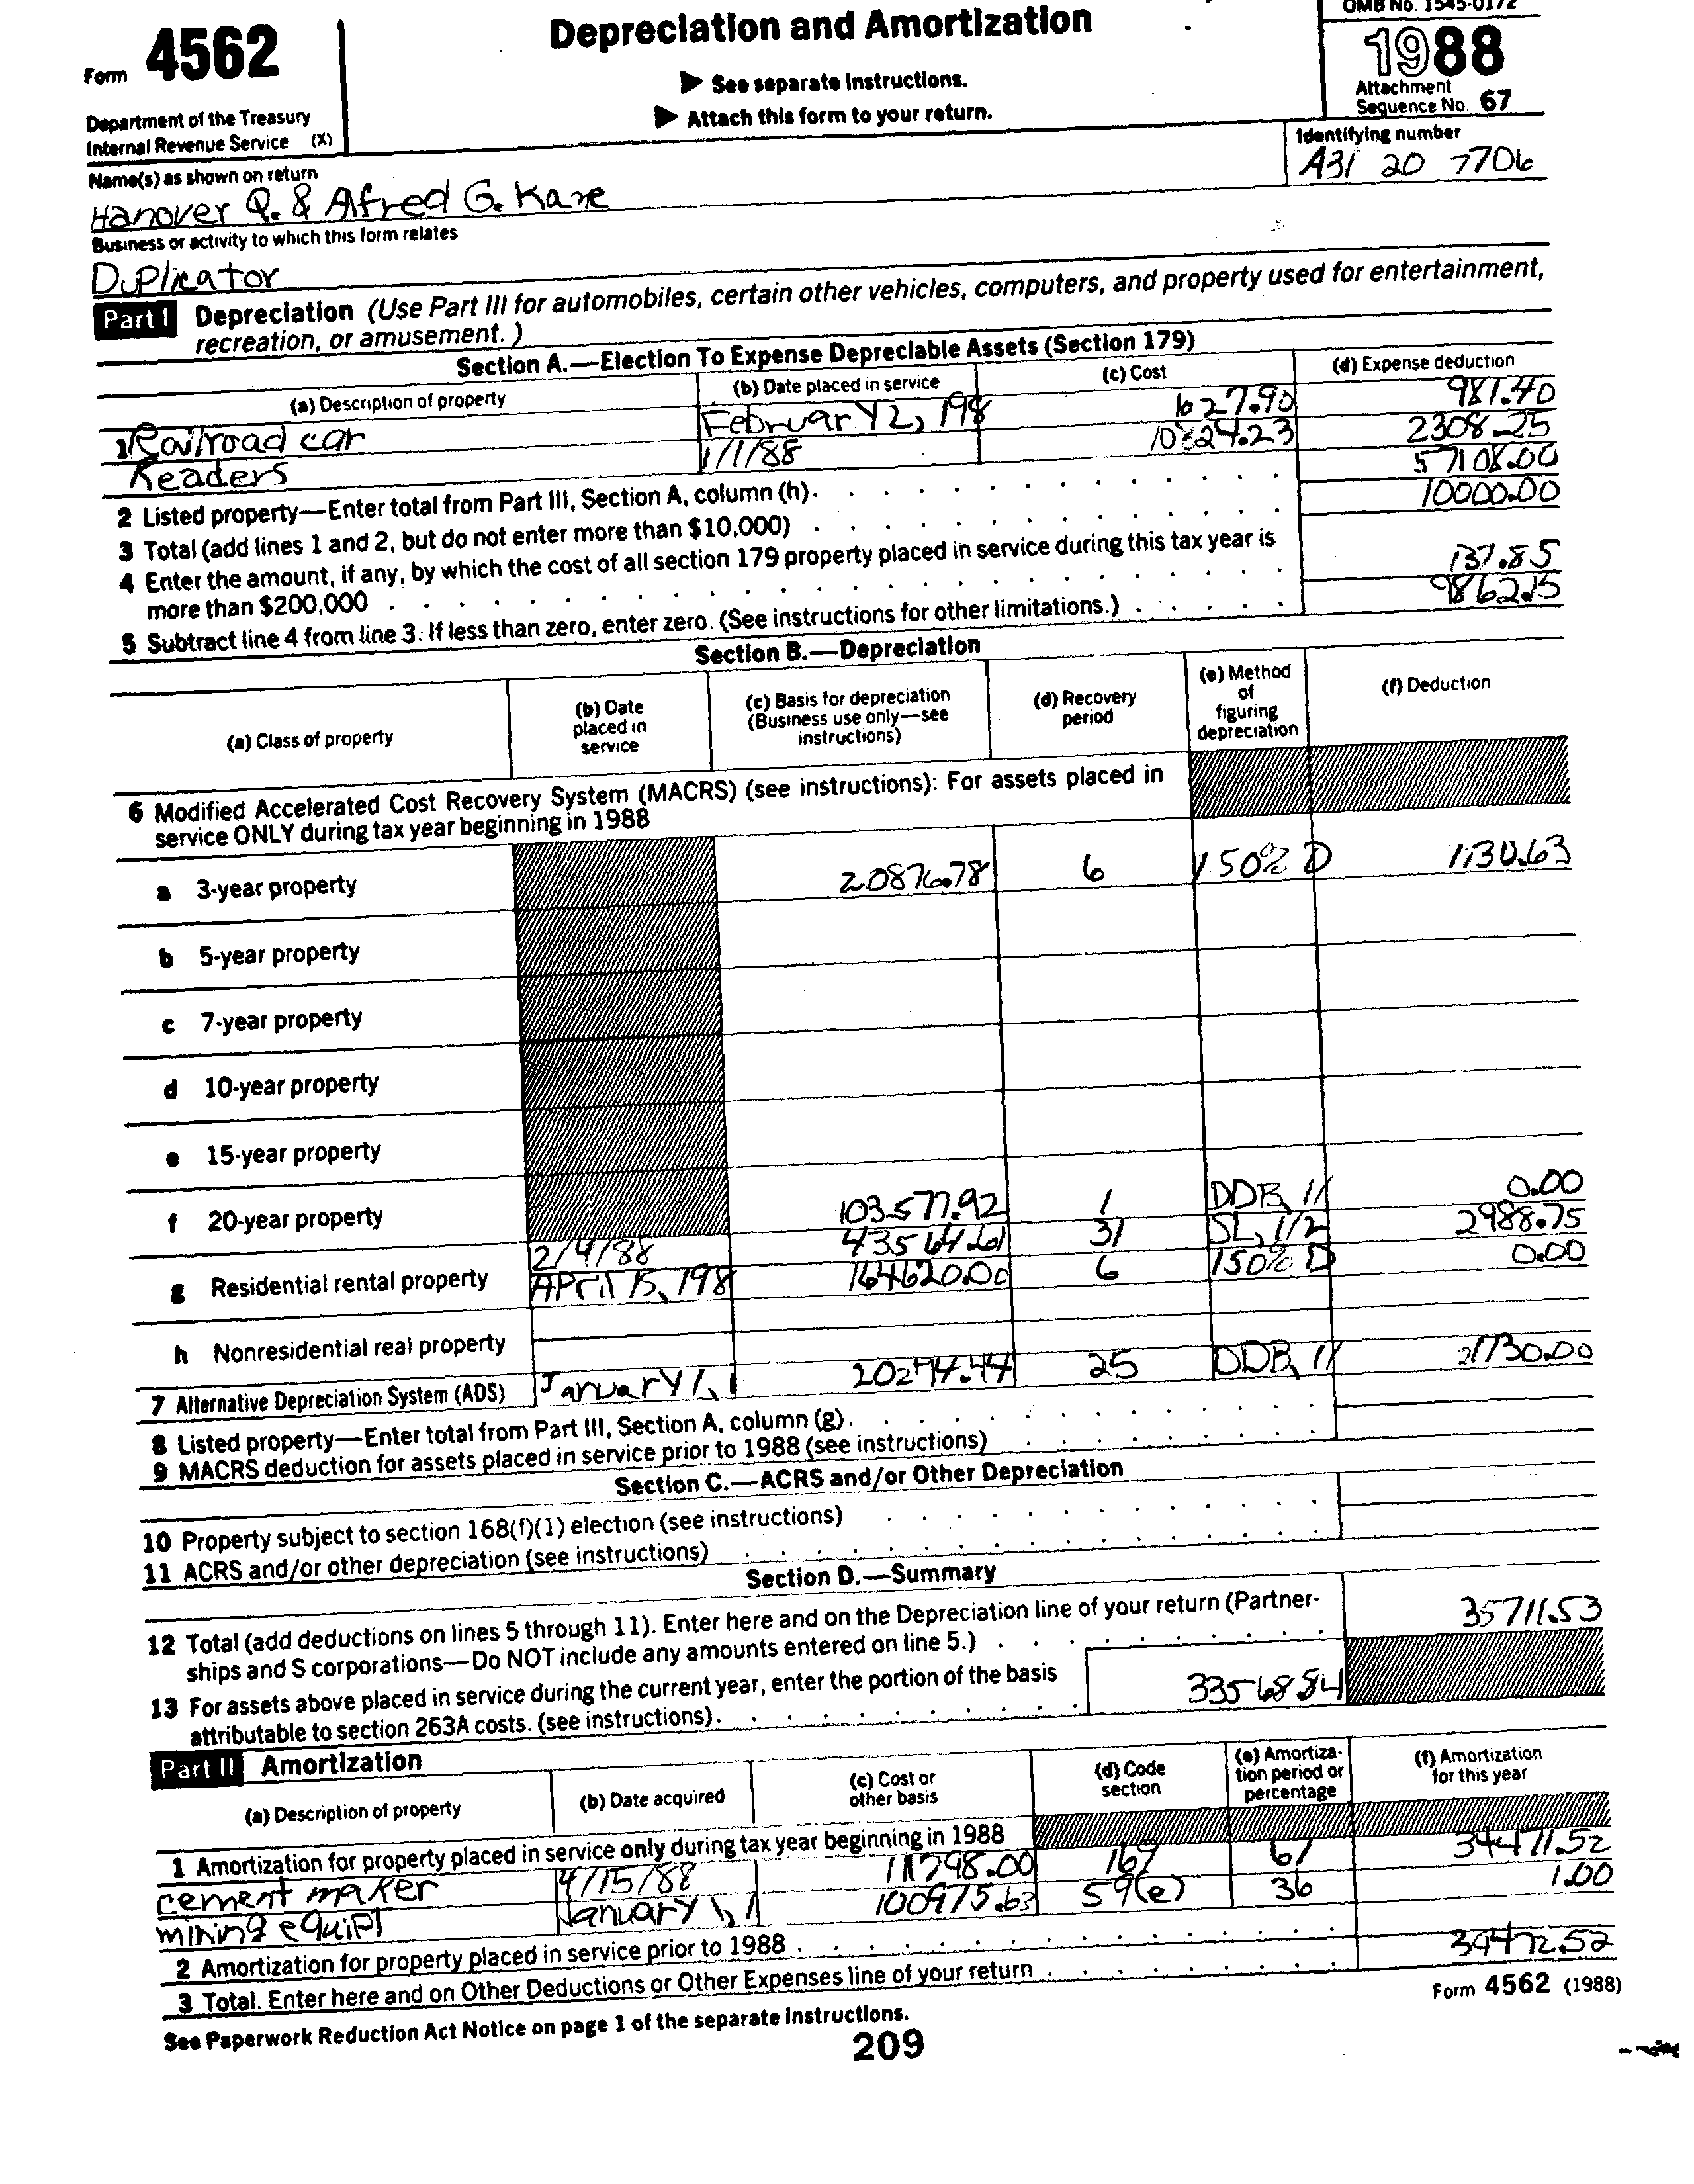 OMB No. 1545-0172
Form 4562
Depreciation and Amortization
1988
▶ See separate Instructions.
▶ Attach this form to your return.
Attachment
Sequence No. 67
Department of the Treasury
Internal Revenue Service (X)
Name(s) as shown on return
Identifying number
Hanover Q. & Alfred G. Kane
A31 20 7706
Business or activity to which this form relates
Duplicator
Part I Depreciation (Use Part III for automobiles, certain other vehicles, computers, and property used for entertainment,
recreation, or amusement.)
Section A.—Election To Expense Depreciable Assets (Section 179)
(a) Description of property (b) Date placed in service (c) Cost (d) Expense deduction
1 Railroad car February 2, 198 1627.90 981.40
Readers 1/1/88 10824.23 2308.25
2 Listed property—Enter total from Part III, Section A, column (h). 57108.00
3 Total (add lines 1 and 2, but do not enter more than $10,000) 10000.00
4 Enter the amount, if any, by which the cost of all section 179 property placed in service during this tax year is
more than $200,000 137.85
5 Subtract line 4 from line 3. If less than zero, enter zero. (See instructions for other limitations.) 9862.15
Section B.—Depreciation
(a) Class of property
(b) Date
placed in
service
(c) Basis for depreciation
(Business use only—see
instructions)
(d) Recovery
period
(e) Method
of
figuring
depreciation
(f) Deduction
6 Modified Accelerated Cost Recovery System (MACRS) (see instructions): For assets placed in
service ONLY during tax year beginning in 1988
a 3-year property 20876.78 6 150% D 1130.63
b 5-year property
c 7-year property
d 10-year property
e 15-year property
f 20-year property 103577.92 1 DDB, 1/ 0.00
2/4/88 43564.61 31 SL, 1/2 2988.75
g Residential rental property April 15, 198 164620.00 6 150% D 0.00
h Nonresidential real property
7 Alternative Depreciation System (ADS) January 1, 1 20274.44 25 DDB, 1/ 21730.00
8 Listed property—Enter total from Part III, Section A, column (g).
9 MACRS deduction for assets placed in service prior to 1988 (see instructions)
Section C.—ACRS and/or Other Depreciation
10 Property subject to section 168(f)(1) election (see instructions)
11 ACRS and/or other depreciation (see instructions)
Section D.—Summary
12 Total (add deductions on lines 5 through 11). Enter here and on the Depreciation line of your return (Partner-
ships and S corporations—Do NOT include any amounts entered on line 5.) 35711.53
13 For assets above placed in service during the current year, enter the portion of the basis
attributable to section 263A costs. (see instructions). 33568.84
Part II Amortization
(a) Description of property
(b) Date acquired
(c) Cost or
other basis
(d) Code
section
(e) Amortiza-
tion period or
percentage
(f) Amortization
for this year
1 Amortization for property placed in service only during tax year beginning in 1988
cement maker 4/15/88 111798.00 167 61 34471.52
mining equipt January 1, 1 100975.63 59(e) 36 1.00
2 Amortization for property placed in service prior to 1988
3 Total. Enter here and on Other Deductions or Other Expenses line of your return 34472.52
See Paperwork Reduction Act Notice on page 1 of the separate Instructions.
Form 4562 (1988)
209